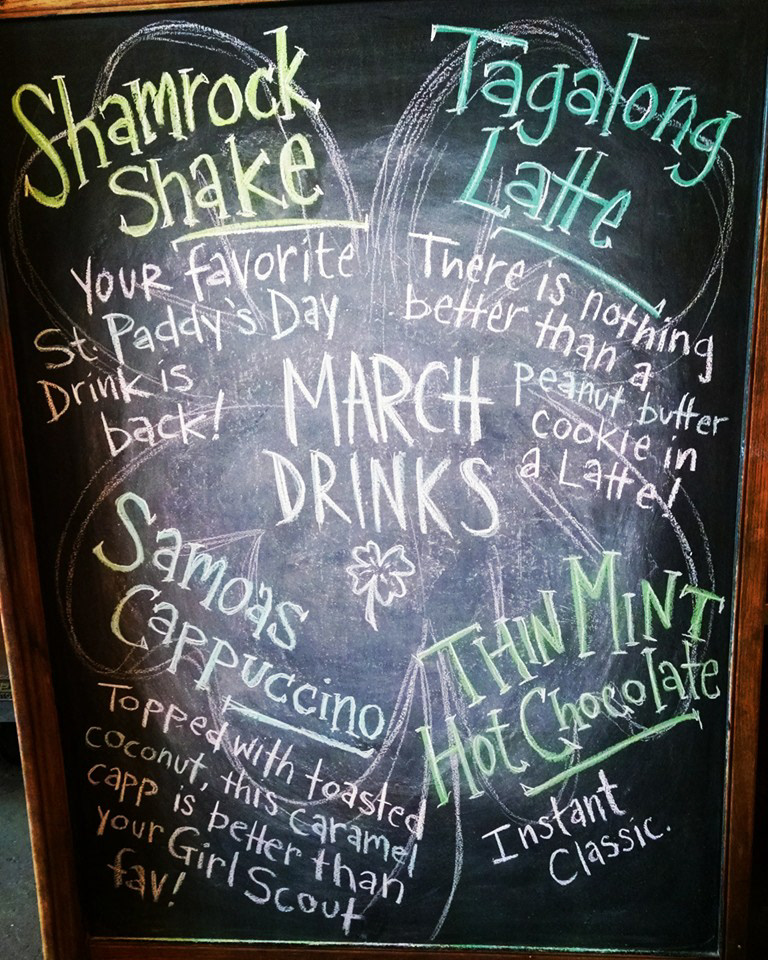 Shamrock
Shake
Your favorite
St Paddy's Day
Drink is
back!
Tagalong
Latte
There is nothing
better than a
peanut butter
cookie in
a Latte!
MARCH
DRINKS
Samoas
Cappuccino
Topped with toasted
coconut, this caramel
capp is better than
your Girl Scout
fav!
THIN MINT
Hot Chocolate
Instant
Classic.